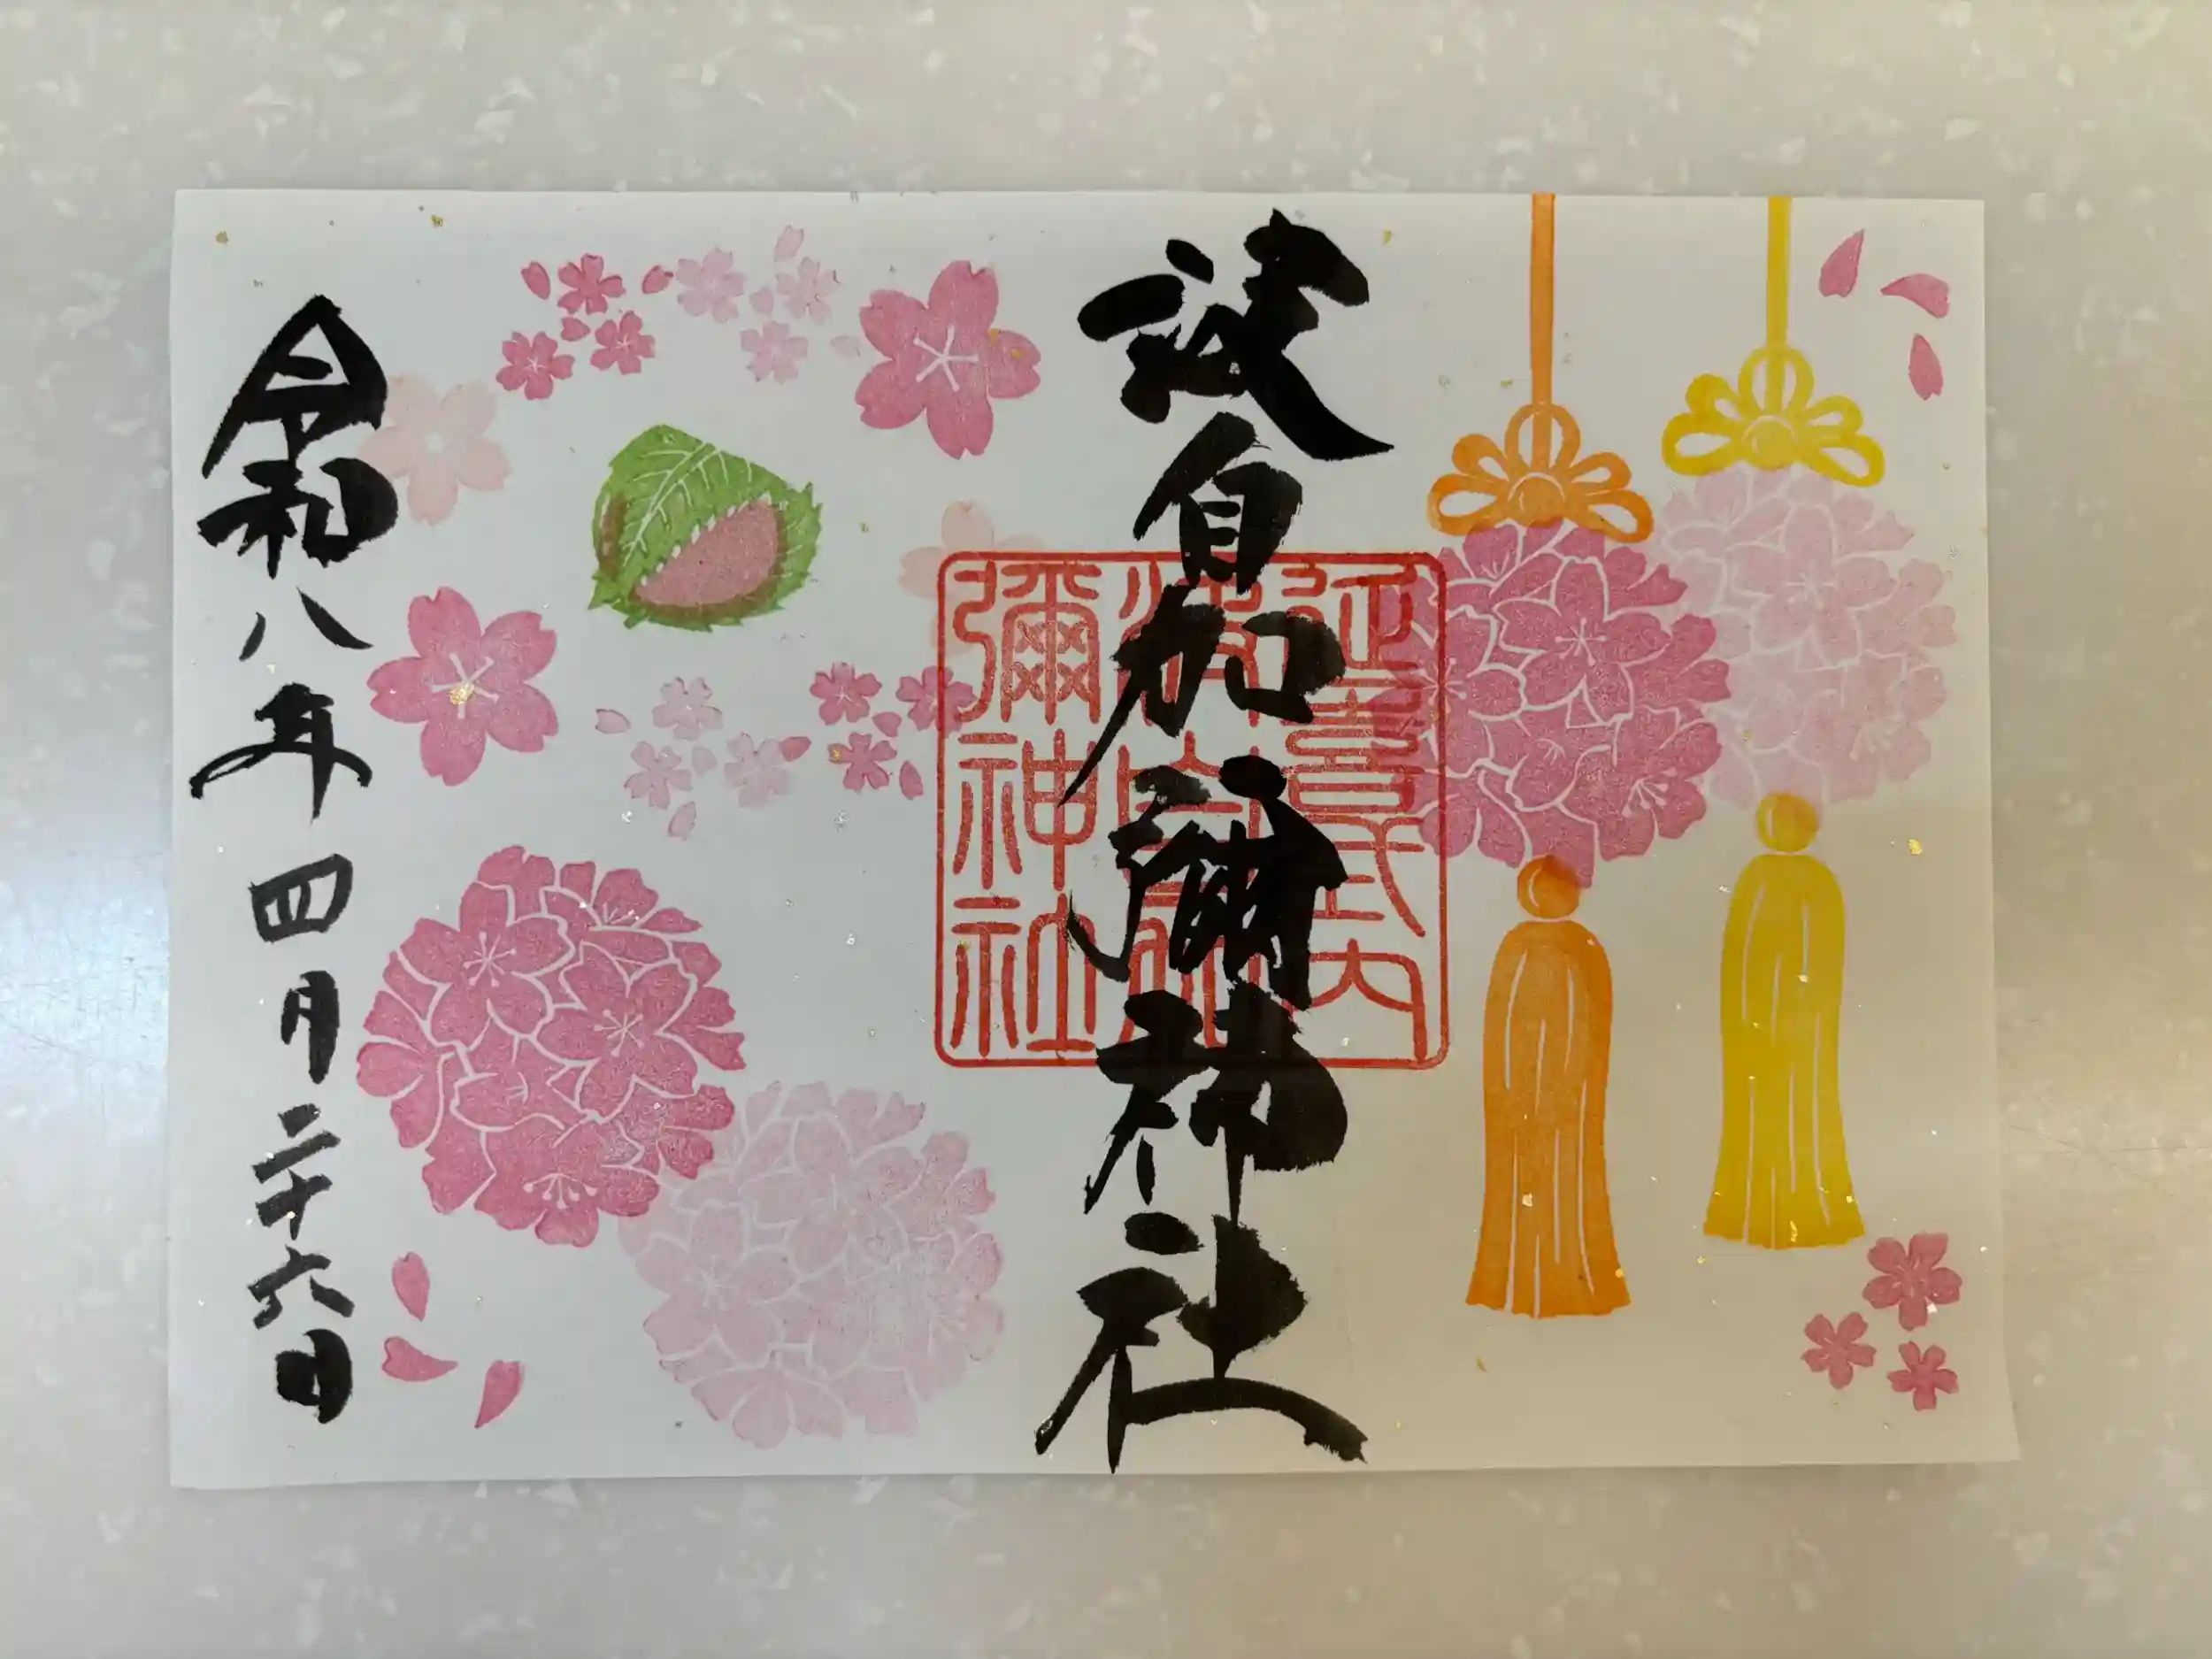 波自加彌神社
延喜式内
波自加
彌神社
令和八年四月二十六日